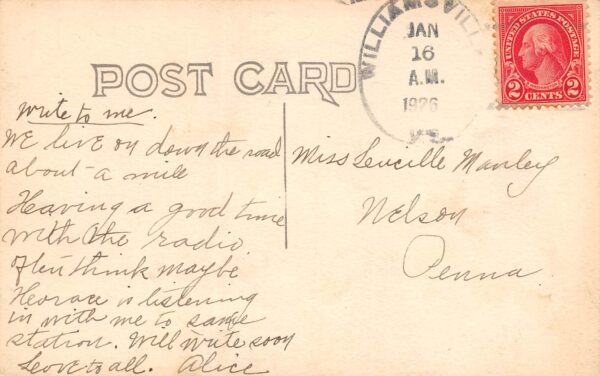 POST CARD
WILLIAMSVILLE
JAN
16
A.M.
1926
VT.
UNITED STATES POSTAGE
WASHINGTON
2 CENTS 2
write to me.
WE live on down the road
about a mile
Having a good time
with the radio
often think maybe
Horace is listening
in with me to same
station. Will write soon
Love to all. Alice
Miss Lucille Manley
Nelson
Penna.